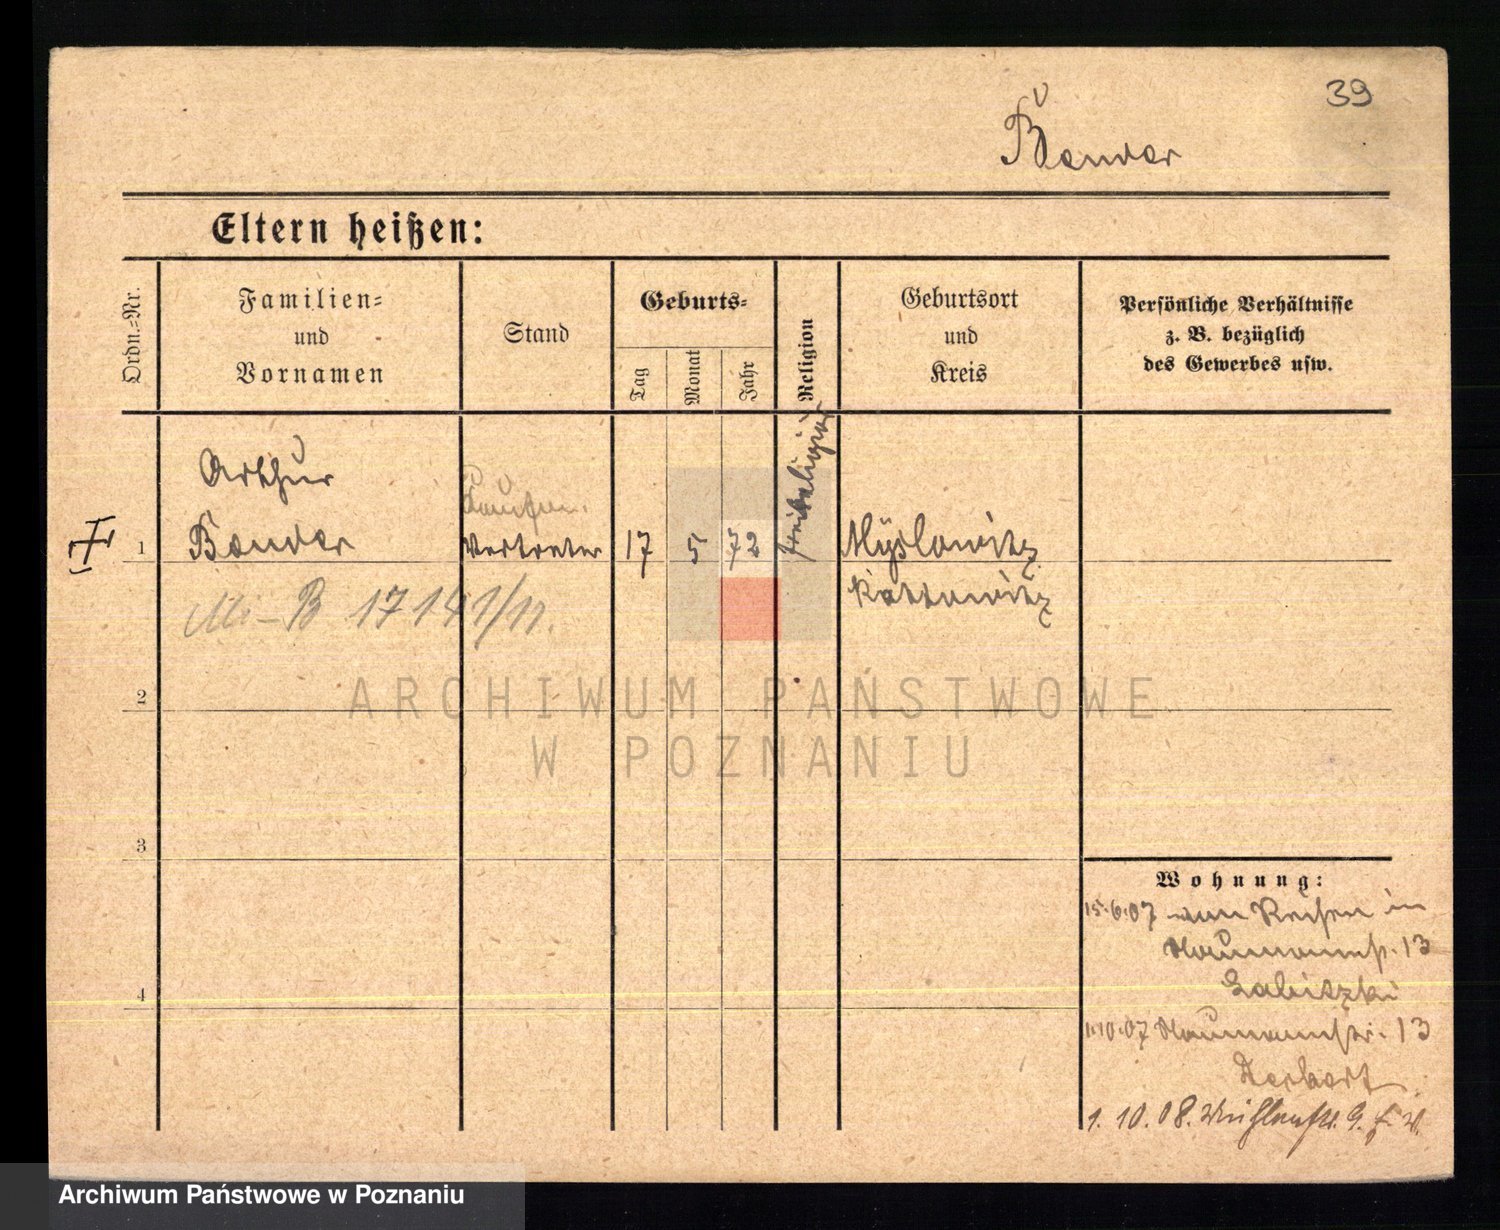 39
Bender
Eltern heißen:
Ordn.=Nr.
Familien=
und
Vornamen
Stand
Geburts=
Tag
Monat
Jahr
Religion
Geburtsort
und
Kreis
Persönliche Verhältnisse
z. B. bezüglich
des Gewerbes usw.
Arthur
Bender
1
Vertreter
17
5
72
freireligiös
Myslowitz
Kattowitz
B 17141/11.
2
ARCHIWUM PAŃSTWOWE
W POZNANIU
3
Wohnung:
15.6.07 von Reisen in
Naumannstr. 13
4
1.10.07 Naumannstr. 13
1. 10. 08.
Archiwum Państwowe w Poznaniu